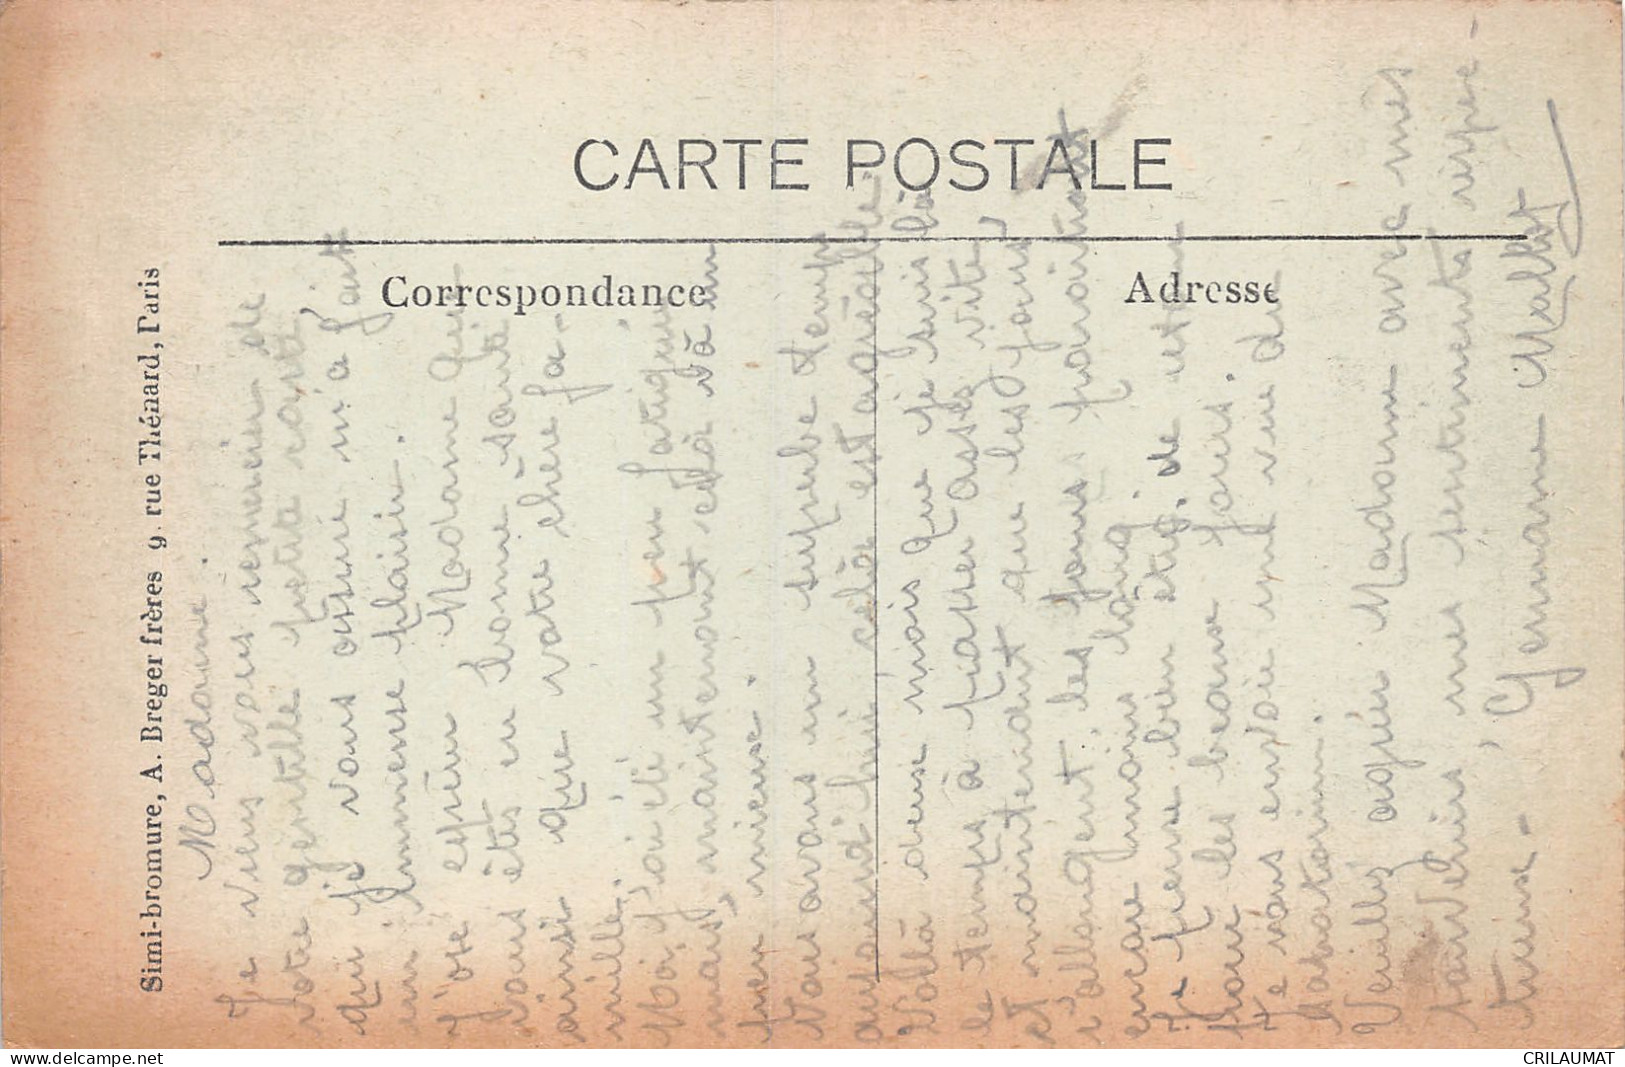 CARTE POSTALE
Correspondance
Adresse
Simi-bromure, A. Breger frères 9, rue Thénard, Paris
Madame.
Je viens vous remercier de
votre gentille petite carte,
qui je vous assure m'a fait
un immense plaisir.
J'ose espérer Madame que
vous êtes en bonne santé
ainsi que votre chère fa-
mille.
Moi, j'ai été un peu fatiguée
mais, maintenant celà và un
peu mieux.
Nous avons un superbe temps
aujourd'hui celà est agréable.
Voilà deux mois que je suis là
le temps à passer assez vite,
et maintenant que les jours
rallongent, les jours paraitront
encore moins long.
Je pense bien être de retour
pour les beaux jours.
Je vous envoie une vue du
Sanatorium.
Veuillez agréer Madame avec mes
souvenirs, mes sentiments respec-
tueux.-
Germaine Mallet
CRILAUMAT